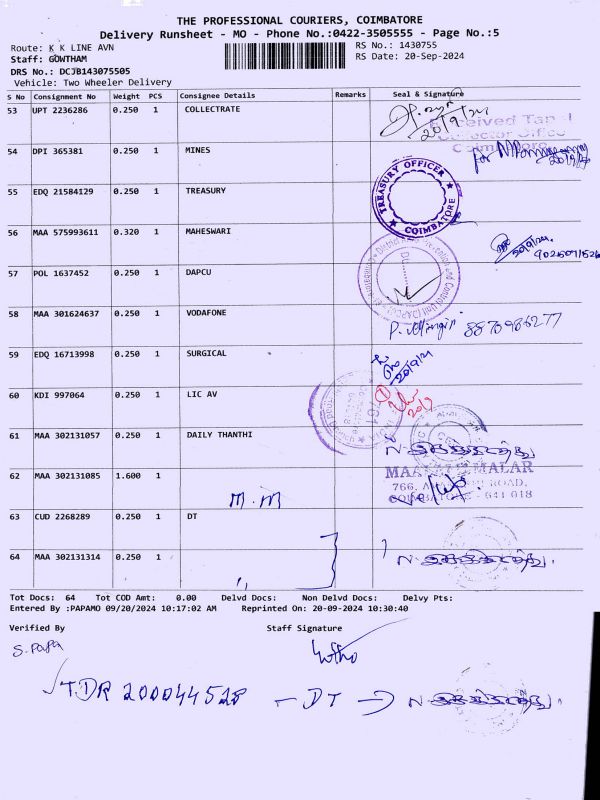 THE PROFESSIONAL COURIERS, COIMBATORE
Delivery Runsheet - MO - Phone No.:0422-3505555 - Page No.:5
Route: K K LINE AVN
RS No.: 1430755
Staff: GOWTHAM
RS Date: 20-Sep-2024
DRS No.: DCJB143075505
Vehicle: Two Wheeler Delivery
S No Consignment No Weight PCS Consignee Details Remarks Seal & Signature
53 UPT 2236286 0.250 1 COLLECTRATE
20/9/24
Received Tapal
Collector Office
Coimbatore
54 DPI 365381 0.250 1 MINES
for
55 EDQ 21584129 0.250 1 TREASURY
TREASURY OFFICER
COIMBATORE
56 MAA 575993611 0.320 1 MAHESWARI
20/9/24.
57 POL 1637452 0.250 1 DAPCU
58 MAA 301624637 0.250 1 VODAFONE
8870986277
59 EDQ 16713998 0.250 1 SURGICAL
20/9/24
60 KDI 997064 0.250 1 LIC AV
61 MAA 302131057 0.250 1 DAILY THANTHI
62 MAA 302131085 1.600 1
M.M
MAALAI MALAR
COIMBATORE - 641 018
63 CUD 2268289 0.250 1 DT
64 MAA 302131314 0.250 1
Tot Docs: 64 Tot COD Amt: 0.00 Delvd Docs: Non Delvd Docs: Delvy Pts:
Entered By :PAPAMO 09/20/2024 10:17:02 AM Reprinted On: 20-09-2024 10:30:40
Verified By Staff Signature
S. PAPA
TDR 200044528 - DT